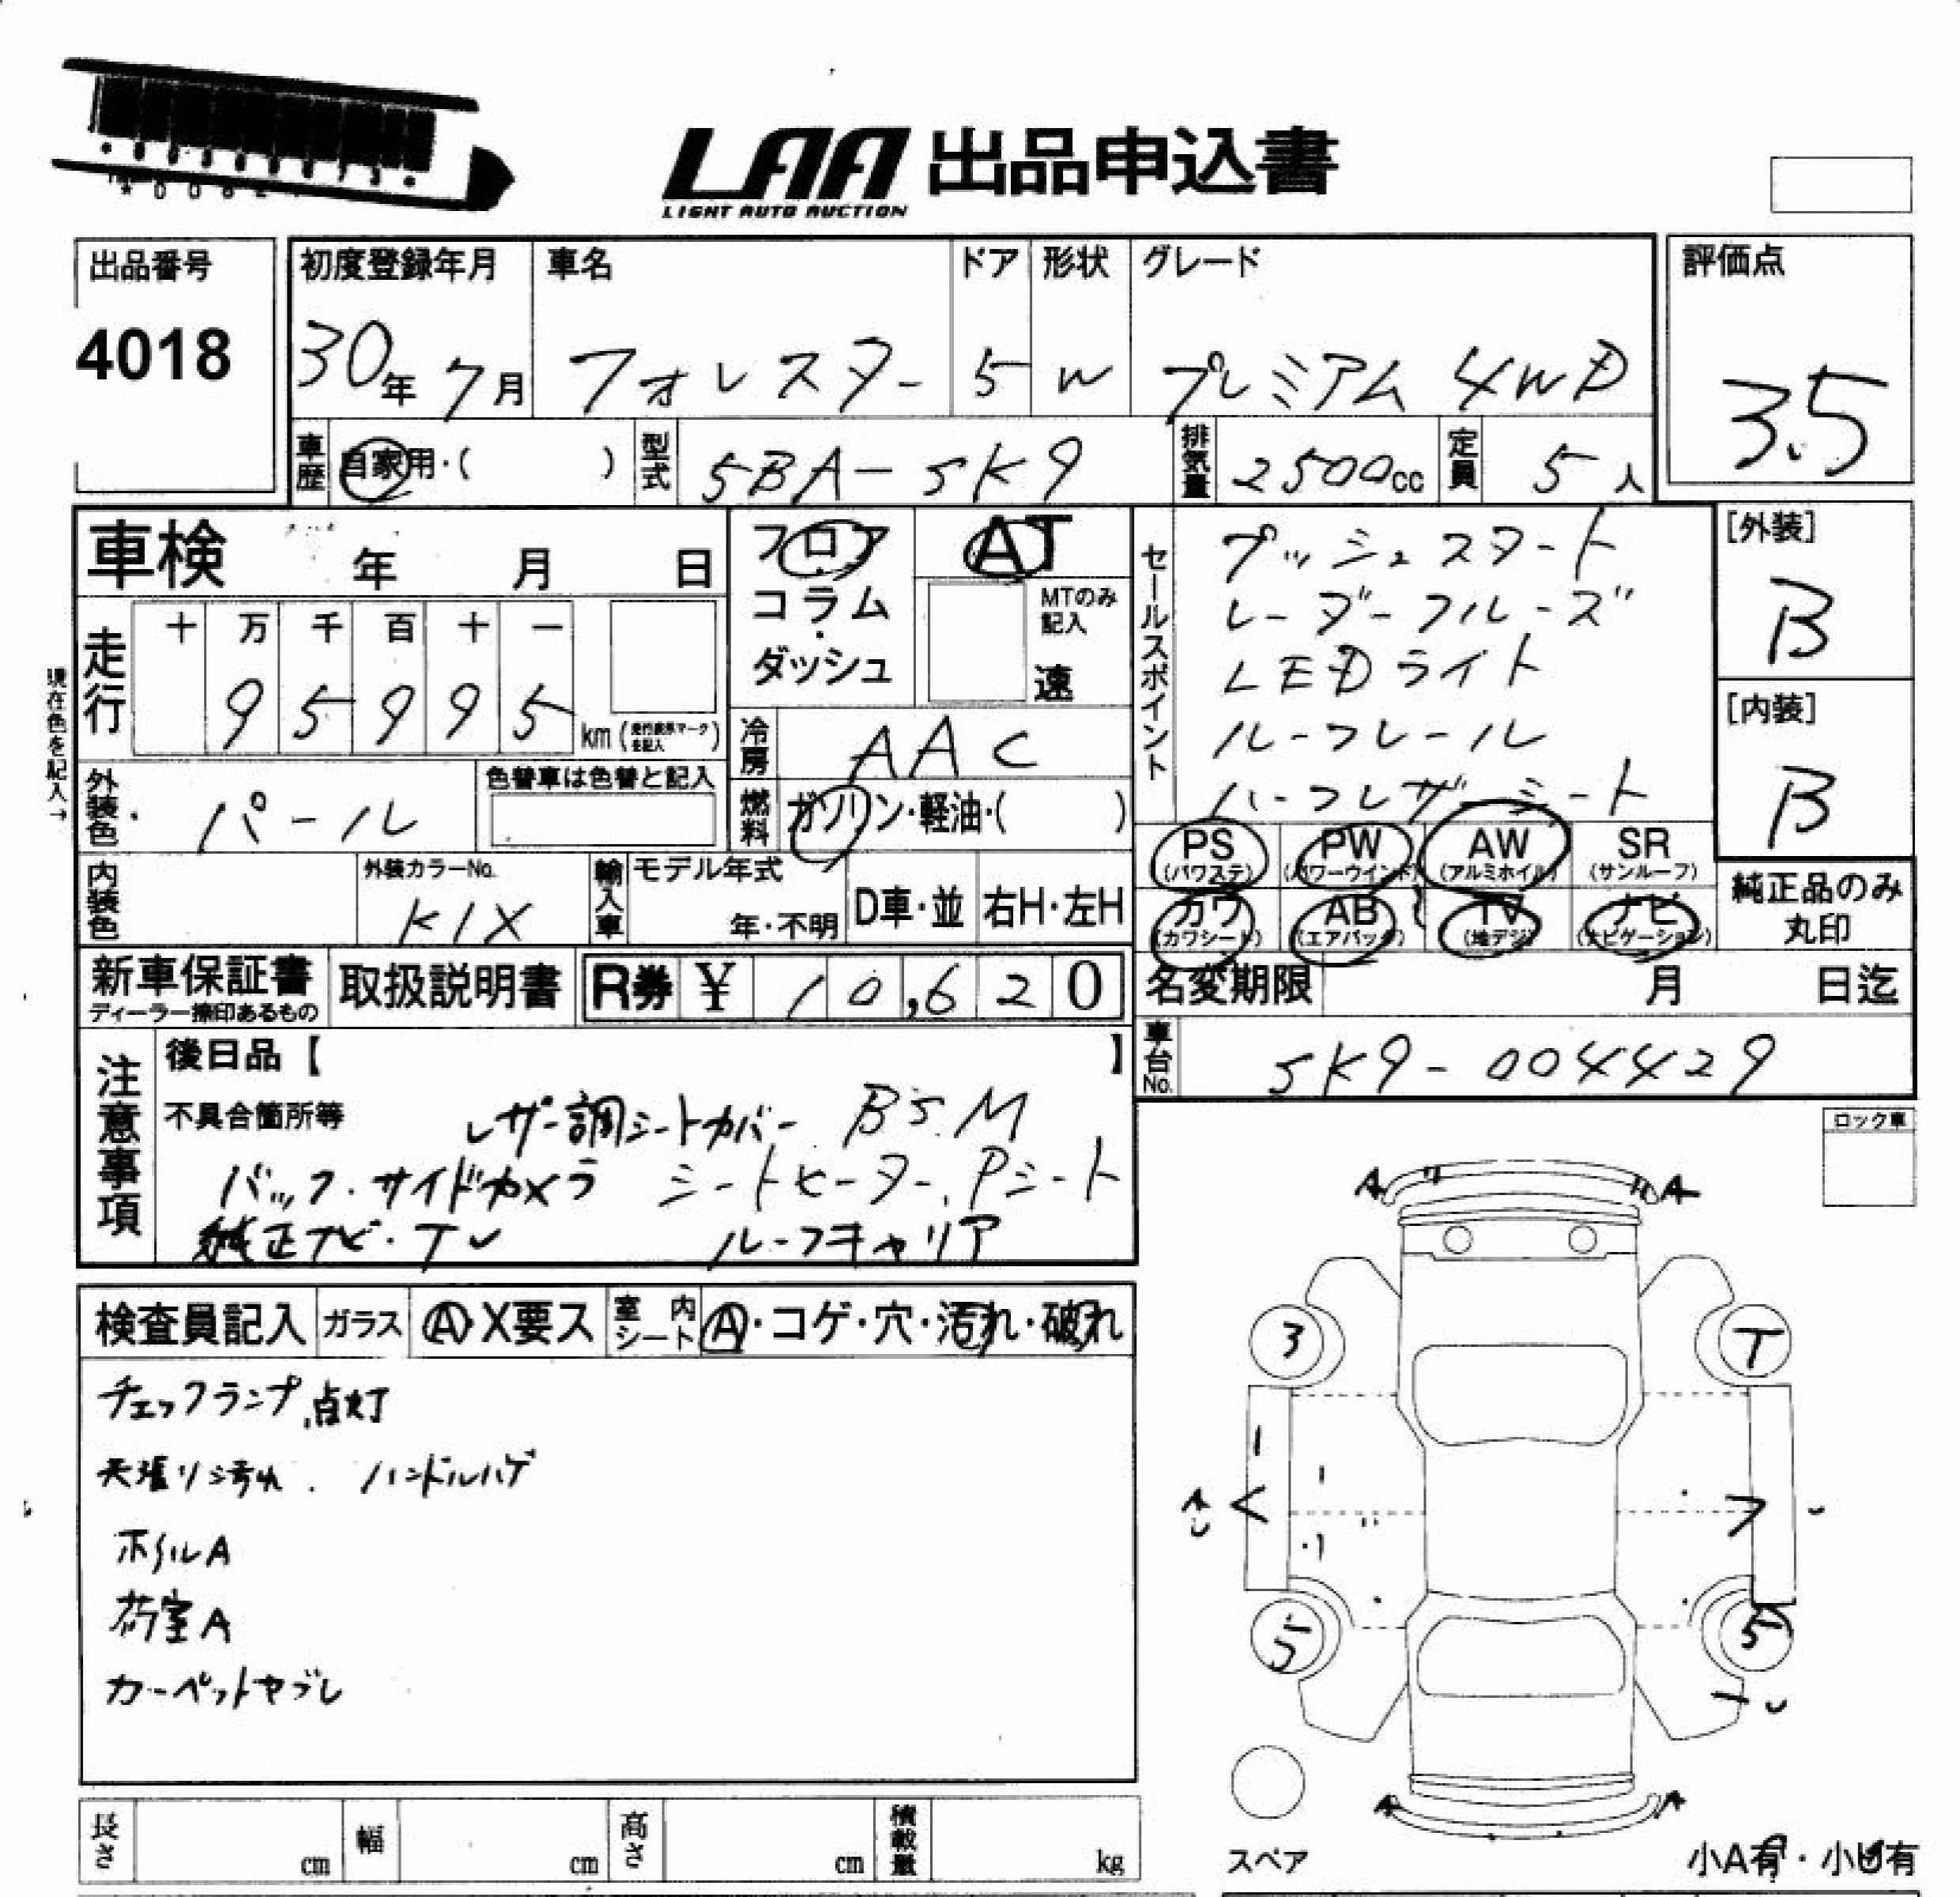 LAA 出品申込書
LIGHT AUTO AUCTION
出品番号
4018
初度登録年月 車名 ドア 形状 グレード
30年 7月 フォレスター 5 W プレミアム 4WD
評価点
3.5
車歴 自家用・( ) 型式 5BA-SK9 排気量 2500cc 定員 5人
車検 年 月 日
走行 十 万 千 百 十 一
9 5 9 9 5 km
現在色を記入→
外装色 パール 色替車は色替と記入
内装色 外装カラーNo. K1X
輸入車 モデル年式 年・不明 D車・並 右H・左H
フロア
コラム
・
ダッシュ
AT
MTのみ
記入
速
冷房 AAC
燃料 ガソリン・軽油・( )
セールスポイント
プッシュスタート
レーダークルーズ
LEDライト
ルーフレール
ハーフレザーシート
[外装]
B
[内装]
B
PS PW AW SR
(パワステ) (パワーウインド) (アルミホイル) (サンルーフ)
カワ AB TV ナビ
(カワシート) (エアバッグ) (地デジ) (ナビゲーション)
純正品のみ
丸印
新車保証書 取扱説明書 R券 ¥ 10,620
ディーラー捺印あるもの
名変期限 月 日迄
車台No. SK9-004429
注意事項
後日品【 】
不具合箇所等 レザー調シートカバー BSM
バック・サイドカメラ シートヒーター、Pシート
純正ナビ・TV ルーフキャリア
ロック車
検査員記入 ガラス A・X要ス 室内シート A・コゲ・穴・汚れ・破れ
チェックランプ点灯
天張り汚れ . ハンドルハゲ
ホイルA
荷室A
カーペットヤブレ
A A
3 T
A
5 5
A A
スペア
小A有・小U有
長さ cm 幅 cm 高さ cm 積載量 kg